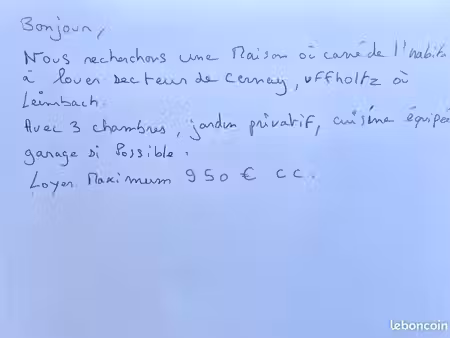 Bonjour,
Nous recherchons une Maison où carré de l'habita
à louer secteur de Cernay, Uffholtz où
Leimbach.
Avec 3 chambres, jardin privatif, cuisine équipée
garage si Possible.
Loyer Maximum 950 € CC.
leboncoin